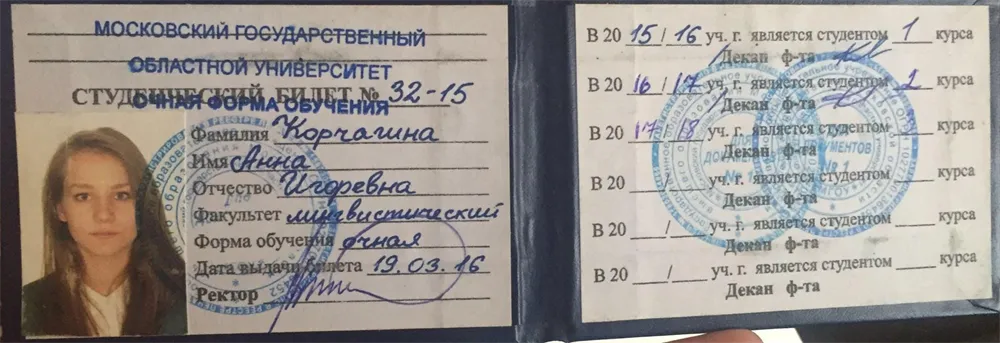 МОСКОВСКИЙ ГОСУДАРСТВЕННЫЙ
ОБЛАСТНОЙ УНИВЕРСИТЕТ
СТУДЕНЧЕСКИЙ БИЛЕТ № 32-15
ОЧНАЯ ФОРМА ОБУЧЕНИЯ
Фамилия Корчагина
Имя Анна
Отчество Игоревна
Факультет лингвистический
Форма обучения очная
Дата выдачи билета 19.03.16
Ректор
В 20 15/16 уч. г. является студентом 1 курса
Декан ф-та
В 20 16/17 уч. г. является студентом 2 курса
Декан ф-та
В 20 17/18 уч. г. является студентом курса
Декан ф-та
В 20 / уч. г. является студентом курса
Декан ф-та
В 20 / уч. г. является студентом курса
Декан ф-та
В 20 / уч. г. является студентом курса
Декан ф-та